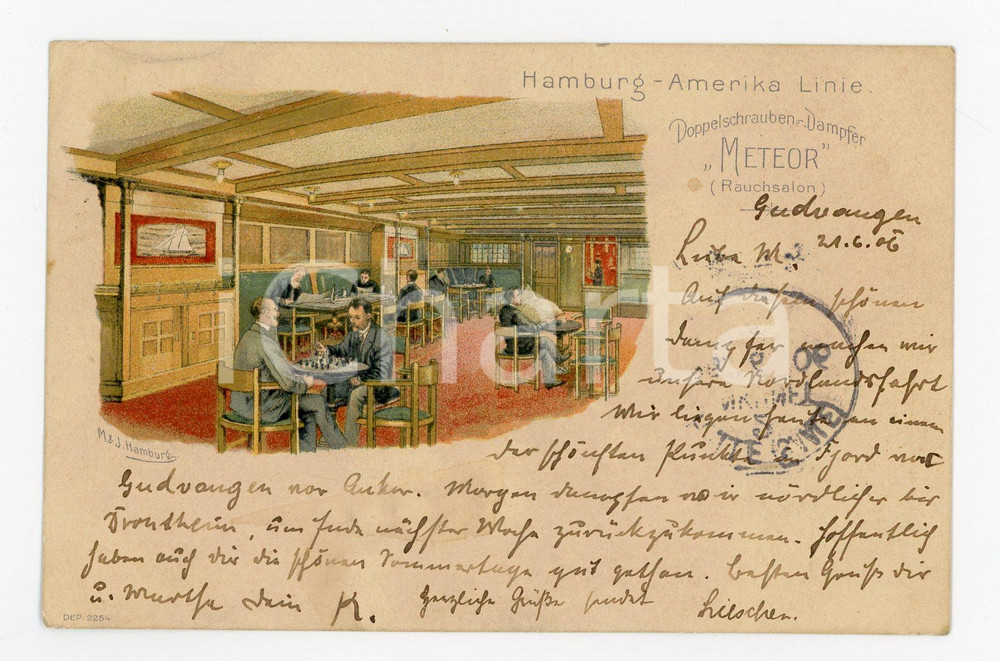 Hamburg-Amerika Linie.
Doppelschrauben-Dampfer
„METEOR"
(Rauchsalon)
Gudvangen
21.6.06
Liebe M.!
Auf diesem schönen
Dampfer machen wir
unsere Nordlandsfahrt
Wir liegen heute an einem
der schönsten Punkte im Fjord vor
Gudvangen vor Anker. Morgen dampfen wir nördlicher bis
Drontheim, um Ende nächster Woche zurückzukommen. Hoffentlich
haben auch dir die schönen Sommertage gut gethan. Besten Gruß dir
u. Martha dein K. Herzliche Grüße sendet Lieschen.
M&J. Hamburg
DEP. 2254
Charta